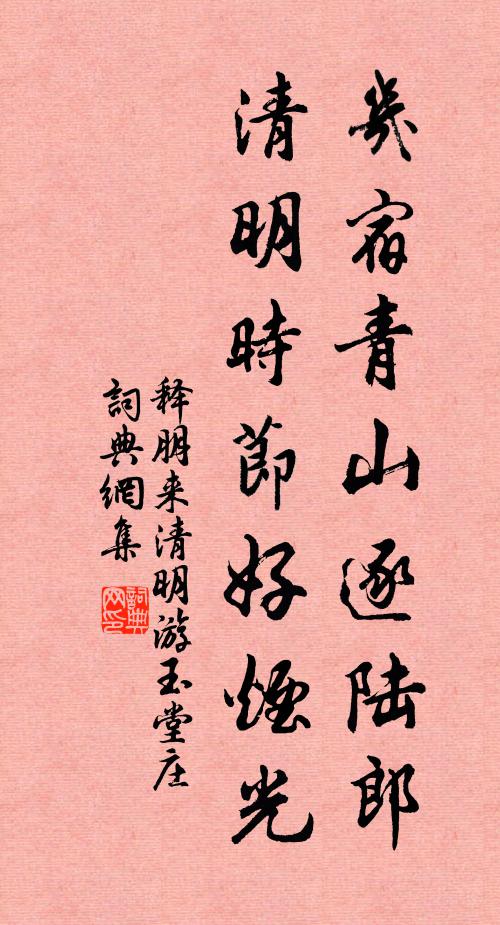 幾宿青山逐陆郎
清明時節好煙光
释明来清明游玉堂庄
詞典網集
詞典网印